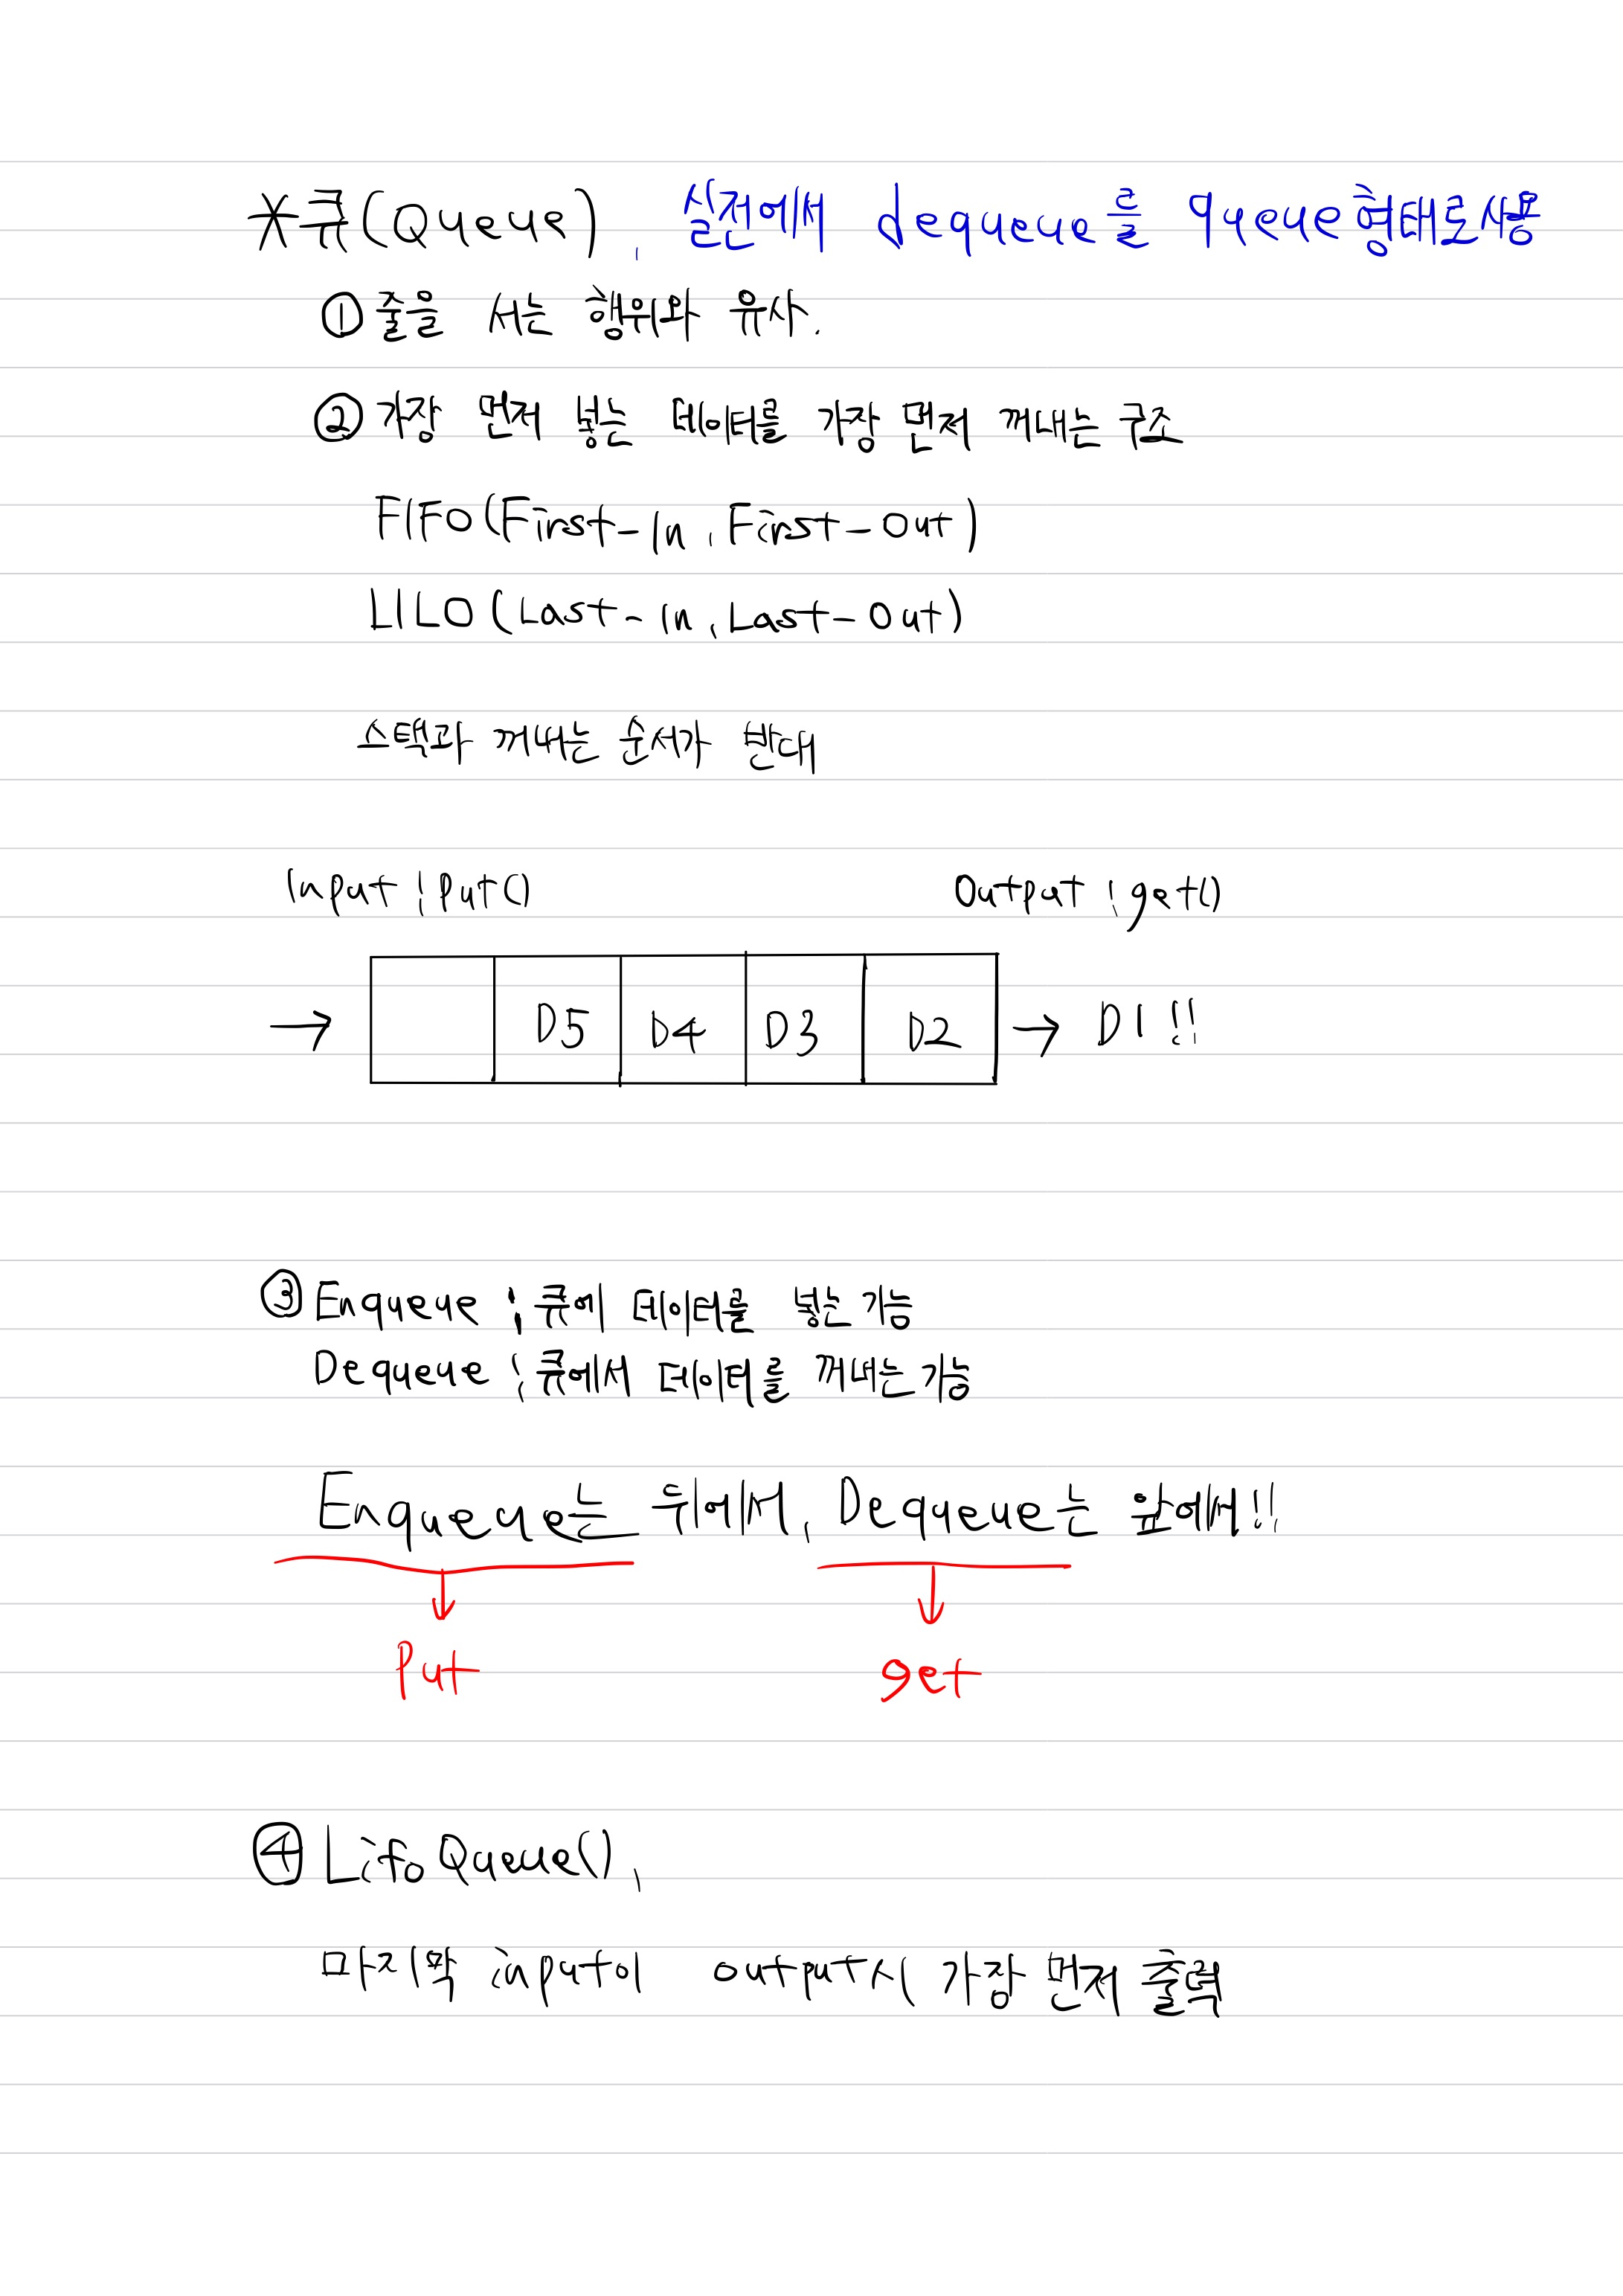 *큐(Queue), 실전에서 dequeue를 queue형태로사용
① 줄을 서는 행위와 유사.
② 가장 먼저 놓는 데이터를 가장 먼저 꺼내는 구조
FIFO(First-In, First-Out)
LILO(Last-In, Last-Out)
스택과 꺼내는 순서가 반대
Input : Put() Output : get()
→ D5 D4 D3 D2 → D1!!
③ Enqueue : 큐에 데이터를 넣는 기능
Dequeue : 큐에서 데이터를 꺼내는 기능
Enqueue는 뒤에서, Dequeue는 앞에서!!
Put get
④ LifoQueue(),
마지막 input이 output시 가장 먼저 출력